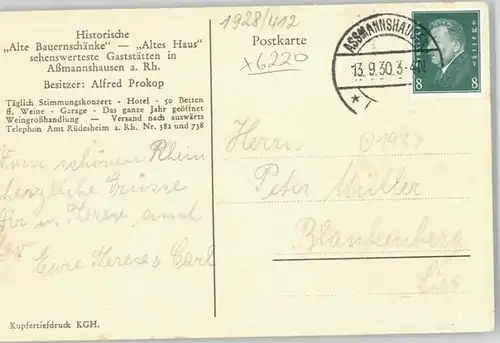 Historische
„Alte Bauernschänke“ — „Altes Haus“
sehenswerteste Gaststätten in
Aßmannshausen a. Rh.
Besitzer: Alfred Prokop
Täglich Stimmungskonzert - Hotel - 50 Betten
ff. Weine - Garage - Das ganze Jahr geöffnet
Weingroßhandlung — Versand nach auswärts
Telephon Amt Rüdesheim a. Rh. Nr. 582 und 738
Vom schönen Rhein
herzliche Grüsse
Eure Therese u Carl
Kupfertiefdruck KGH.
1928/412
Postkarte
x6220
ASSMANNSHAUSEN
13.9.30.3-4
8 8
Herrn
Peter Müller
Blankenberg